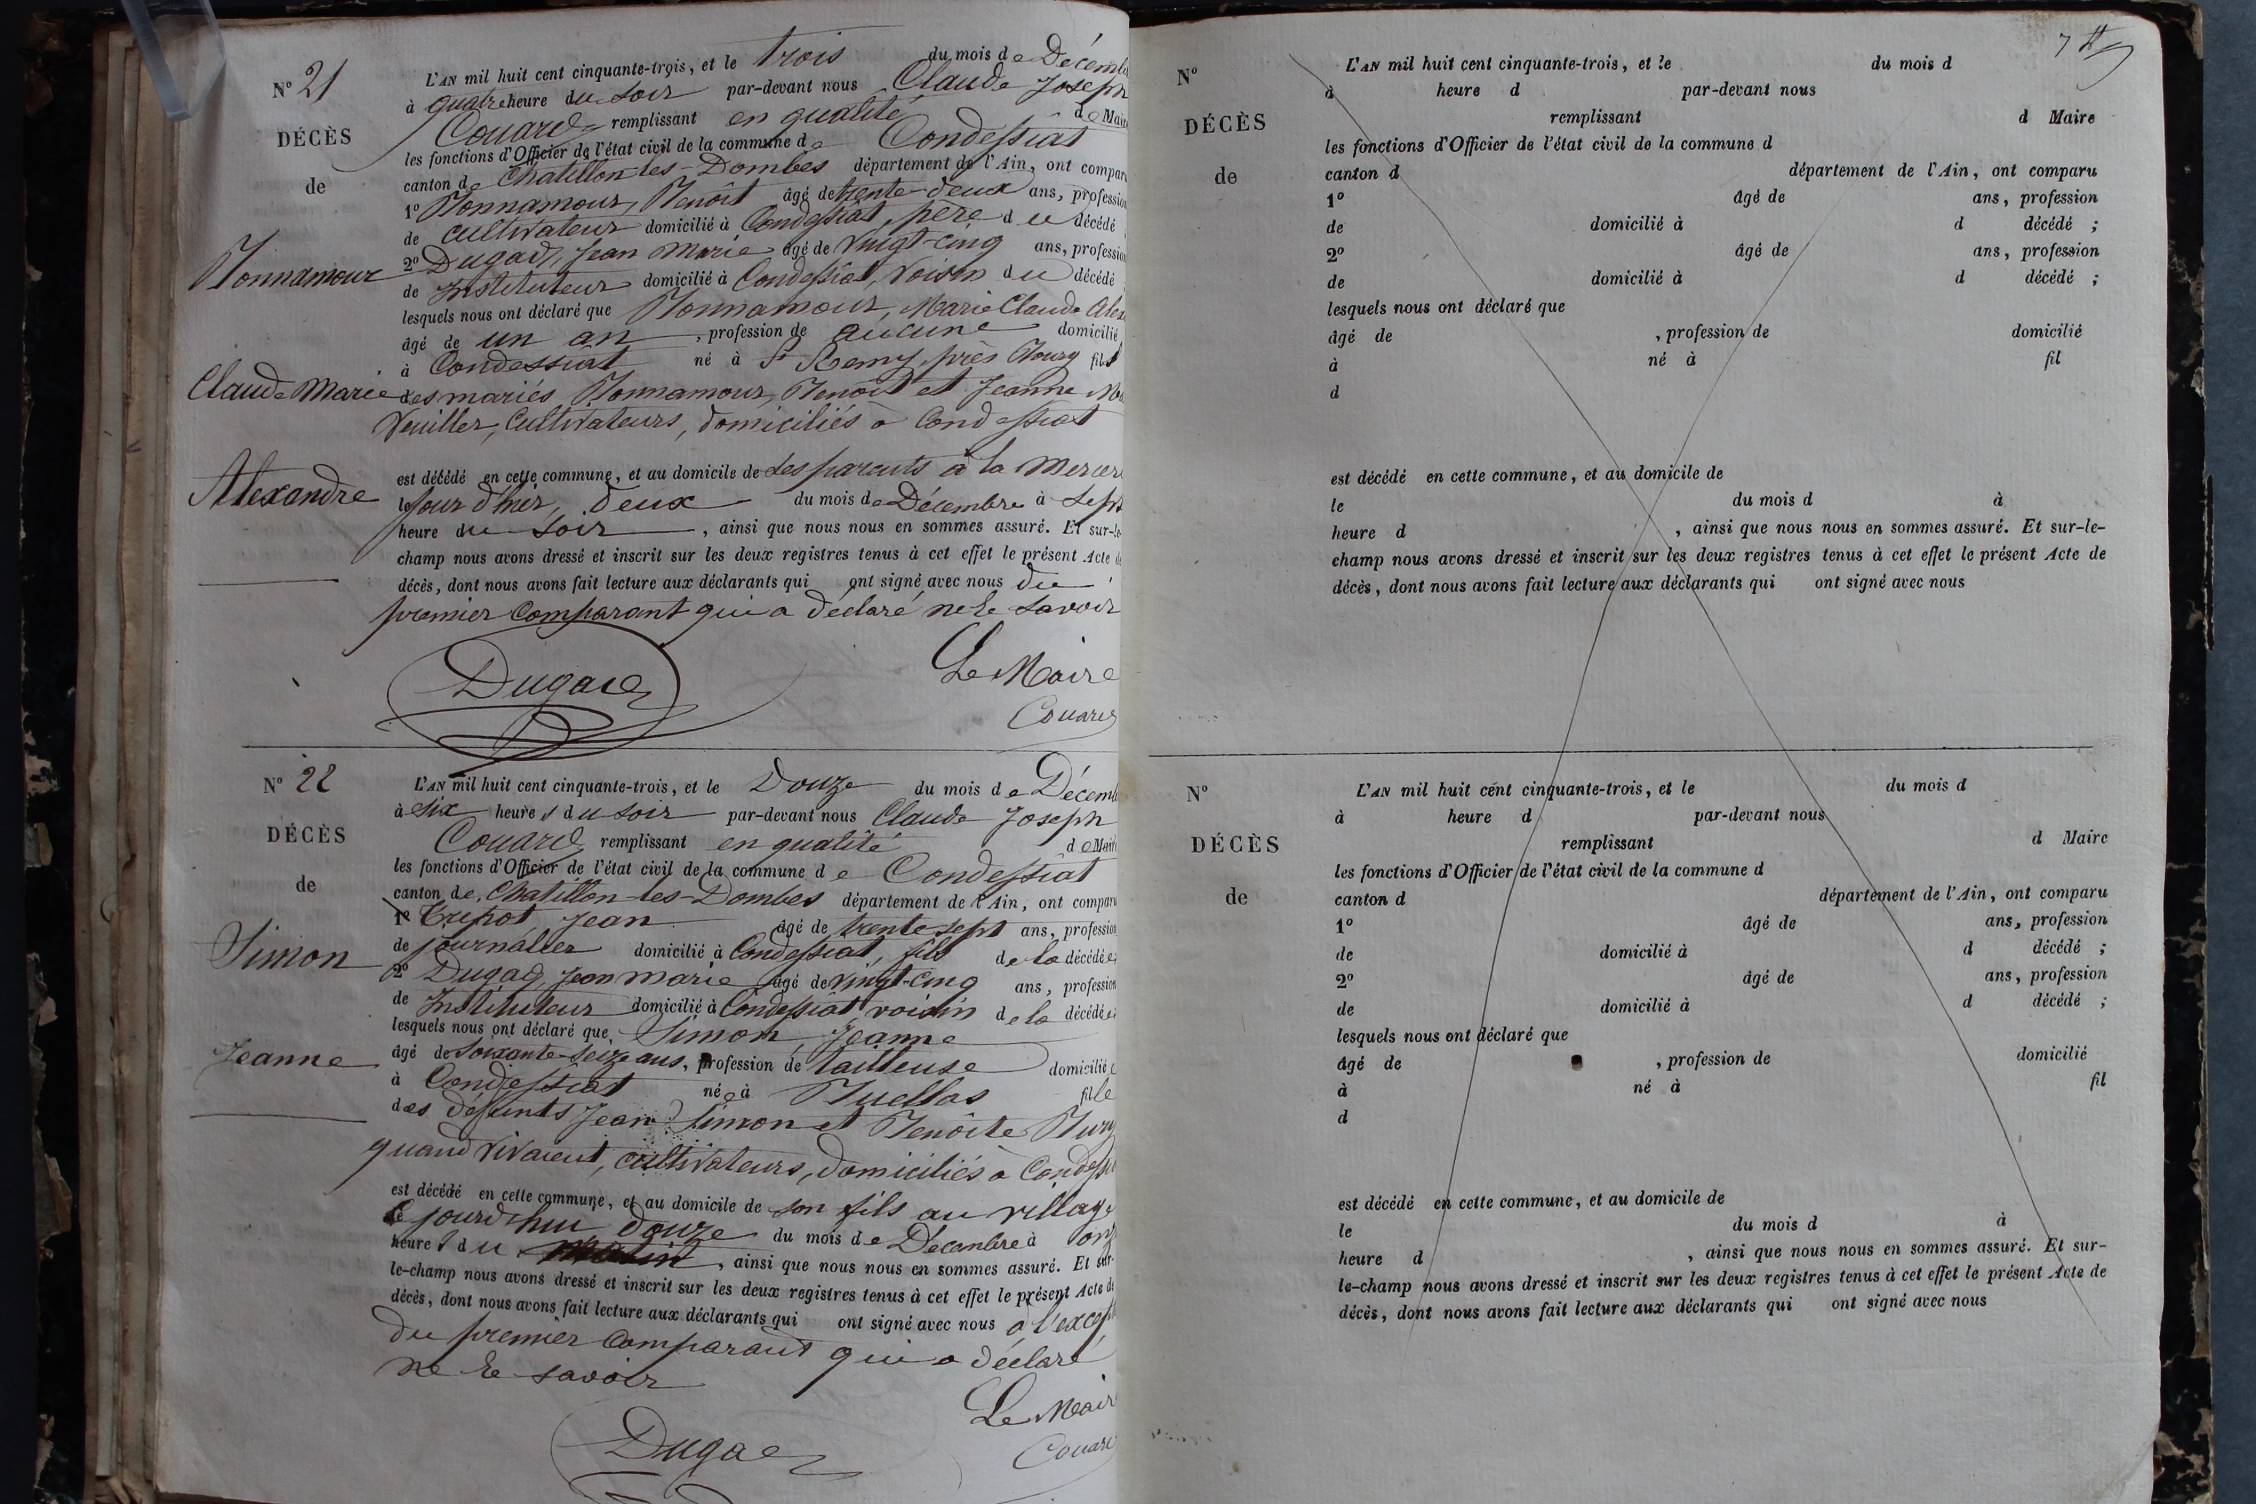 N° 21
DÉCÈS
de
Bonnamour
Claude Marie
Alexandre
L'AN mil huit cent cinquante-trois, et le trois du mois de Décembre
à quatre heure du soir par-devant nous Claude Joseph
Couard remplissant en qualité de Maire
les fonctions d'Officier de l'état civil de la commune de Condessiat
canton de Chatillon-les-Dombes département de l'Ain, ont comparu
1° Bonnamour, Benoît âgé de trente-deux ans, profession
de cultivateur domicilié à Condessiat, père du décédé
2° Dugad, Jean Marie âgé de vingt-cinq ans, profession
de Instituteur domicilié à Condessiat, voisin du décédé
lesquels nous ont déclaré que Bonnamour, Marie Claude Alex
âgé de un an, profession de aucune domicilié
à Condessiat né à St Remy, près Bourg fils
des mariés Bonnamour, Benoît et Jeanne
Veuillet, Cultivateurs, domiciliés à Condessiat
est décédé en cette commune, et au domicile de ses parents à la
le jour d'hier, deux du mois de Décembre à sept
heure du soir, ainsi que nous nous en sommes assuré. Et sur-le-
champ nous avons dressé et inscrit sur les deux registres tenus à cet effet le présent Acte de
décès, dont nous avons fait lecture aux déclarants qui ont signé avec nous du
premier Comparant qui a déclaré ne le savoir
Dugad
Le Maire
Couard
N° 22
DÉCÈS
de
Simon
Jeanne
L'AN mil huit cent cinquante-trois, et le Douze du mois de Décemb
à six heures du soir par-devant nous Claude Joseph
Couard remplissant en qualité de Maire
les fonctions d'Officier de l'état civil de la commune de Condessiat
canton de Chatillon-les-Dombes département de l'Ain, ont comparu
1° Jean âgé de trente sept ans, profession
de journalier domicilié à Condessiat, fils de la décédée
2° Dugad, Jean marie âgé de vingt-cinq ans, profession
de Instituteur domicilié à Condessiat, voisin de la décédée
lesquels nous ont déclaré que Simon, Jeanne
âgé de soixante-seize ans, profession de tailleuse domiciliée
à Condessiat née à Buellas fille
des défunts Jean Simon et Benoîte
quand vivaient, cultivateurs, domiciliés à Condess
est décédé en cette commune, et au domicile de son fils au village
le jourd'hui douze du mois de Décembre à onz
heures du matin, ainsi que nous nous en sommes assuré. Et sur-
le-champ nous avons dressé et inscrit sur les deux registres tenus à cet effet le présent Acte de
décès, dont nous avons fait lecture aux déclarants qui ont signé avec nous à l'excep
du premier Comparant qui a déclaré
ne le savoir
Le Maire
Dugad
Couard
N°
DÉCÈS
de
L'AN mil huit cent cinquante-trois, et le du mois d
à heure d par-devant nous
remplissant d Maire
les fonctions d'Officier de l'état civil de la commune d
canton d département de l'Ain, ont comparu
1° âgé de ans, profession
de domicilié à d décédé ;
2° âgé de ans, profession
de domicilié à d décédé ;
lesquels nous ont déclaré que
âgé de , profession de domicilié
à né à fil
d
est décédé en cette commune, et au domicile de
le du mois d à
heure d , ainsi que nous nous en sommes assuré. Et sur-le-
champ nous avons dressé et inscrit sur les deux registres tenus à cet effet le présent Acte de
décès, dont nous avons fait lecture aux déclarants qui ont signé avec nous
N°
DÉCÈS
de
L'AN mil huit cent cinquante-trois, et le du mois d
à heure d par-devant nous
remplissant d Maire
les fonctions d'Officier de l'état civil de la commune d
canton d département de l'Ain, ont comparu
1° âgé de ans, profession
de domicilié à d décédé ;
2° âgé de ans, profession
de domicilié à d décédé ;
lesquels nous ont déclaré que
âgé de , profession de domicilié
à né à fil
d
est décédé en cette commune, et au domicile de
le du mois d à
heure d , ainsi que nous nous en sommes assuré. Et sur-
le-champ nous avons dressé et inscrit sur les deux registres tenus à cet effet le présent Acte de
décès, dont nous avons fait lecture aux déclarants qui ont signé avec nous